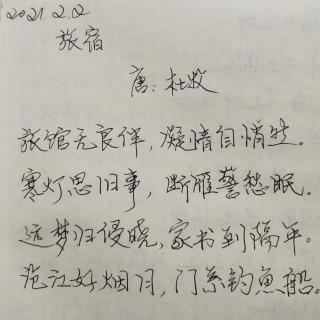 2021.2.2
旅宿
唐:杜牧
旅馆无良伴,凝情自悄然。
寒灯思旧事,断雁警愁眠。
远梦归侵晓,家书到隔年。
沧江好烟月,门系钓鱼船。